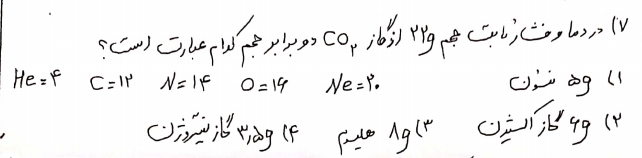 ۱۷) در دما و فشار ثابت حجم ۲۲g از گاز CO۲ دو برابر حجم کدام عبارت است؟
He=۴ C=۱۲ N=۱۴ O=۱۶ Ne=۲۰
۱) ۵g نئون
۲) ۶g گاز اکسیژن ۳) ۸g هلیم ۴) ۳٫۵g گاز نیتروژن